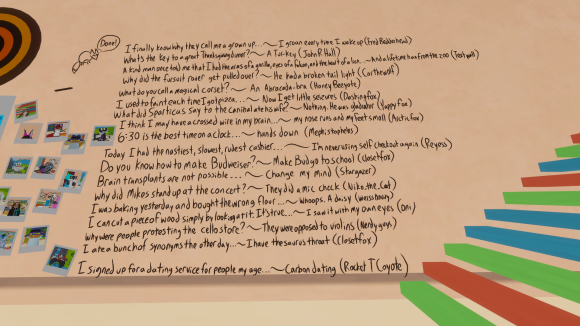 Done!
I finally know why they call me a grown up...~ I groan every time I wake up (Fred Badderhead)
What's the key to a great Thanksgiving dinner? ~ A Tur-key (John R Hall)
A kind man once told me that I had the arms of a gorilla, eyes of a falcon, and the heart of a lion... ~ And a lifetime ban from the zoo (Testyall)
Why did the fursuit racer get pulled over? ~ He had a broken tail light (Corithewolf)
what do you call a magical corset? ~ An Abracada-bra (Honey Beeyote)
I used to faint each time I got pizza... ~ Now I get little seizures (Dashingfox)
What did Sparticus say to the cannibal ate his wife? ~ Nothing. He was gladiator (Yappy Fox)
I think I may have a crossed wire in my brain... ~ my nose runs and my feet smell (Arcticfox)
6:30 is the best time on a clock... ~ hands down (Mephistopheles)
Today I had the nastiest, slowest, rudest cashier... ~ I'm never using self checkout again (Reyess)
Do you know how to make Budweiser? ~ Make Bud go to school (closetfox)
Brain transplants are not possible... ~ Change my mind (Stargazer)
why did Mikes stand up at the concert? ~ They did a mic check (Niiko.the_Cat)
I was baking yesterday and bought the wrong floor... ~ Whoops. A daisy
I can cut a piece of wood simply by looking at it. It's true... ~ I saw it with my own eyes (Oni)
why were people protesting the cello store? ~ They were opposed to violins (Nerdy guy)
I ate a bunch of synonyms the other day... ~ I have thesaurus throat (Closetfox)
I signed up for a dating service for people my age... ~ Carbon dating (Rocket T Coyote)